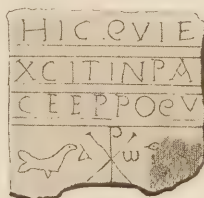 HIC QVIE
XCITINPA
CEEPPOQV
A ☧ ω